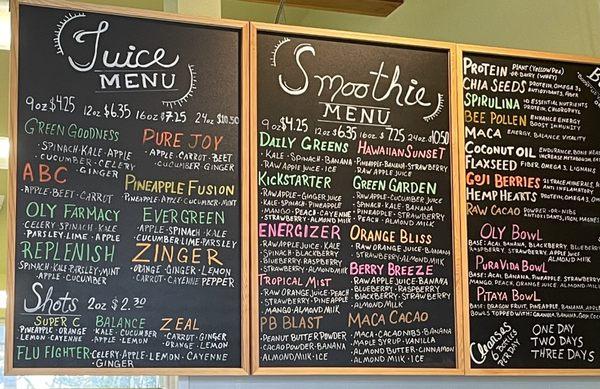 Juice
MENU
9oz $4.25 12oz $6.35 16oz $7.25 24oz $10.50
GREEN GOODNESS
SPINACH·KALE·APPLE
CUCUMBER·CELERY
GINGER
PURE JOY
APPLE·CARROT·BEET
CUCUMBER·GINGER
ABC
APPLE·BEET·CARROT
PINEAPPLE FUSION
PINEAPPLE·APPLE·CUCUMBER·MINT
OLY FARMACY
CELERY·SPINACH·KALE
PARSLEY·LIME·APPLE
EVERGREEN
APPLE·SPINACH·KALE
CUCUMBER·LIME·PARSLEY
REPLENISH
SPINACH·KALE·PARSLEY·MINT
APPLE·CUCUMBER
ZINGER
ORANGE·GINGER·LEMON
CARROT·CAYENNE PEPPER
Shots 2oz $2.30
SUPER C
PINEAPPLE·ORANGE
LEMON·CAYENNE
BALANCE
CELERY·KALE·CUCUMBER
LEMON·APPLE
ZEAL
CARROT·GINGER
ORANGE·LEMON
FLU FIGHTER CELERY·APPLE·LEMON·CAYENNE
GINGER
Smoothie
MENU
9oz $4.25 12oz $6.35 16oz $7.25 24oz $10.50
DAILY GREENS
KALE·SPINACH·BANANA
RAW APPLE JUICE·ICE
HAWAIIAN SUNSET
PINEAPPLE·BANANA·STRAWBERRY
RAW APPLE JUICE
KICKSTARTER
RAW APPLE·GINGER JUICE
KALE·SPINACH·PINEAPPLE
MANGO·PEACH·CAYENNE
STRAWBERRY·ALMOND MILK
GREEN GARDEN
RAW APPLE·CUCUMBER JUICE
SPINACH·KALE·BANANA
PINEAPPLE·STRAWBERRY
PEACH·ALMOND MILK
ENERGIZER
RAW APPLE JUICE·KALE
SPINACH·BLACKBERRY
BLUEBERRY·RASPBERRY
STRAWBERRY·ALMOND MILK
ORANGE BLISS
RAW ORANGE JUICE·BANANA
STRAWBERRY·ALMOND MILK·ICE
TROPICAL MIST
RAW ORANGE JUICE·PEACH
STRAWBERRY·PINEAPPLE
MANGO·ALMOND MILK
BERRY BREEZE
RAW APPLE JUICE·BANANA
BLUEBERRY·RASPBERRY
BLACKBERRY·STRAWBERRY
ALMOND MILK
PB BLAST
PEANUT BUTTER POWDER
CACAO POWDER·BANANA
ALMOND MILK·ICE
MACA CACAO
MACA·CACAO NIBS·BANANA
MAPLE SYRUP·VANILLA
ALMOND BUTTER·CINNAMON
ALMOND MILK·ICE
PROTEIN PLANT (YELLOW PEA)
OR DAIRY (WHEY)
CHIA SEEDS PROTEIN, OMEGA 3
ANTIOXIDANTS, FIBER
SPIRULINA 10 ESSENTIAL NUTRIENTS
PROTEIN, CHLOROPHYLL
BEE POLLEN ENHANCE ENERGY
BOOST IMMUNITY
MACA ENERGY, BALANCE, VITALITY
COCONUT OIL ENDURANCE, BONE HEA
INCREASE METABOLISM
FLAXSEED FIBER, OMEGA 3, LIGNANS
GOJI BERRIES 21 TRACE MINERALS
ANTI INFLAMMATORY
HEMP HEARTS PROTEIN, OMEGA 3
RAW CACAO POWDER·OR·NIBS
ANTIOXIDANTS, IRON, MAGNES
OLY BOWL
BASE: ACAI, BANANA, BLACKBERRY, BLUEBERRY
RASPBERRY, STRAWBERRY, APPLE
PURA VIDA BOWL
BASE: ACAI, BANANA, PINEAPPLE, STRAWBERRY
MANGO, PEACH, ORANGE
PITAYA BOWL
BASE: DRAGON FRUIT, PINEAPPLE, BANANA, APPLE
BOWLS TOPPED WITH: GRANOLA, BANANA, GOJI, COC
CLEANSES
6 BOTTLES
PER DAY
ONE DAY
TWO DAYS
THREE DAYS